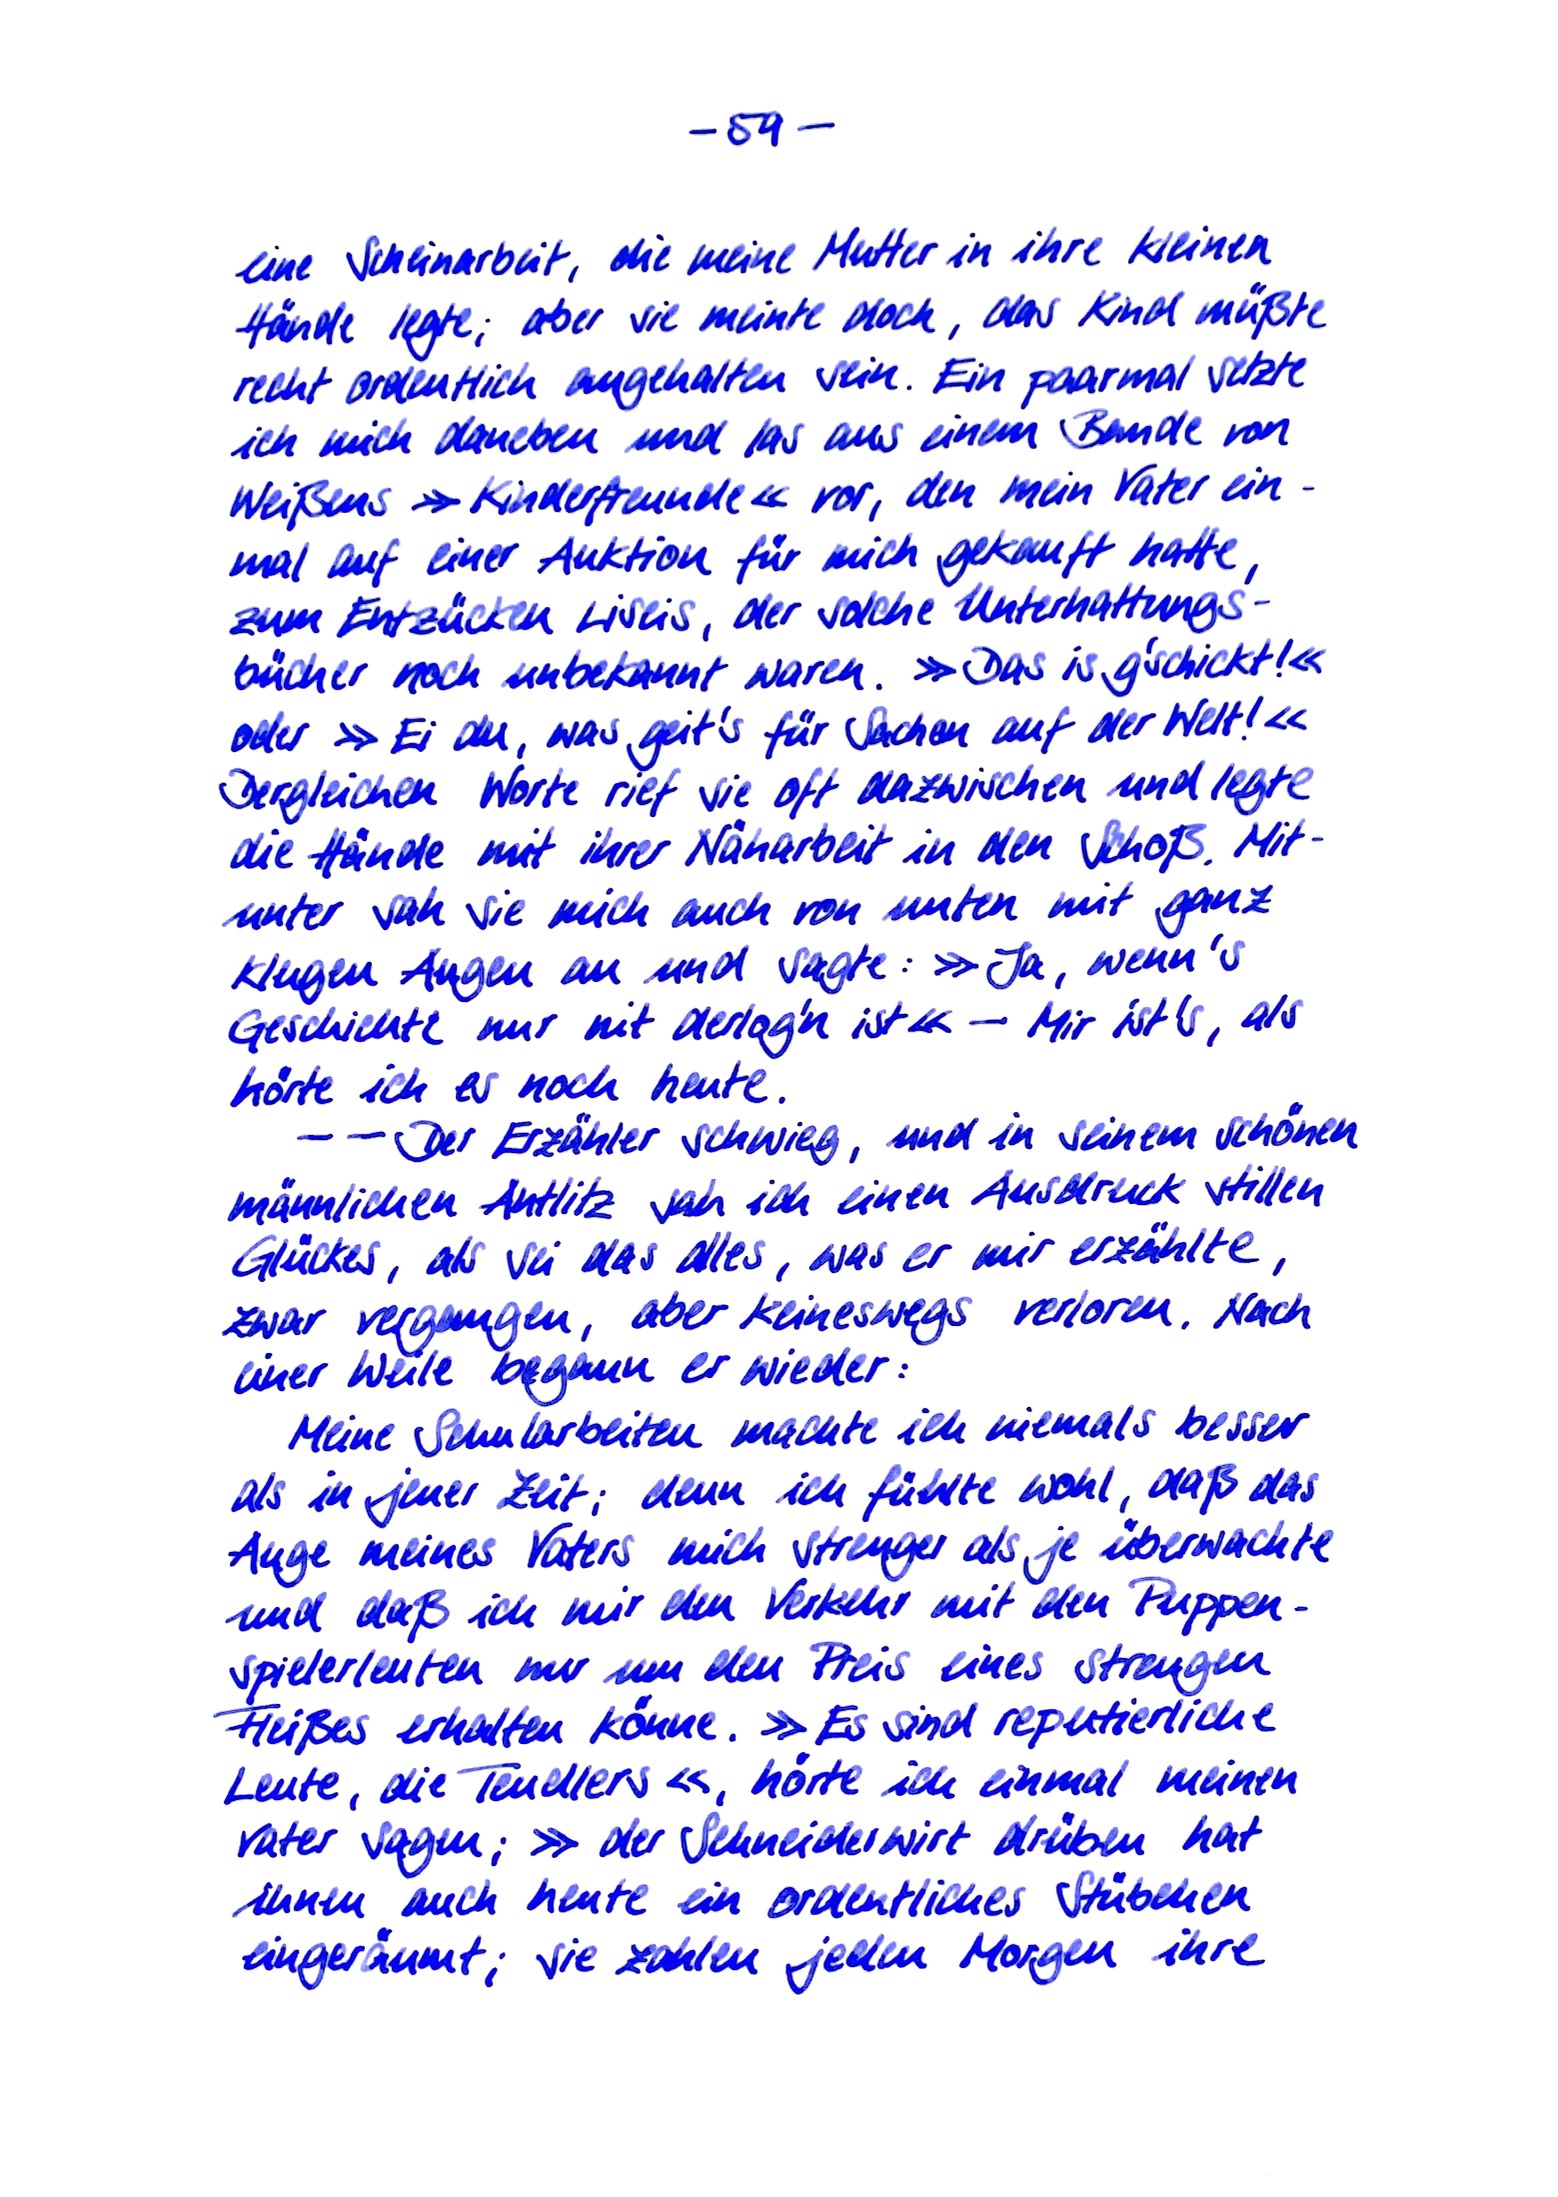 – 59 –
eine Scheinarbeit, die meine Mutter in ihre kleinen
Hände legte; aber sie meinte doch, das Kind müßte
recht ordentlich angehalten sein. Ein paarmal setzte
ich mich daneben und las aus einem Bande von
Weißens »Kinderfreunde« vor, den mein Vater ein-
mal auf einer Auktion für mich gekauft hatte,
zum Entzücken Liseis, der solche Unterhaltungs-
bücher noch unbekannt waren. »Das is g'schickt!«
oder »Ei du, was geit's für Sachen auf der Welt!«
Dergleichen Worte rief sie oft dazwischen und legte
die Hände mit ihrer Näharbeit in den Schoß. Mit-
unter sah sie mich auch von unten mit ganz
klugen Augen an und sagte: »Ja, wenn's
Geschichte nur nit derlog'n ist« – Mir ist's, als
hörte ich es noch heute.
– – Der Erzähler schwieg, und in seinem schönen
männlichen Antlitz sah ich einen Ausdruck stillen
Glückes, als sei das alles, was er mir erzählte,
zwar vergangen, aber keineswegs verloren. Nach
einer Weile begann er wieder:
Meine Schularbeiten machte ich niemals besser
als in jener Zeit; denn ich fühlte wohl, daß das
Auge meines Vaters mich strenger als je überwachte
und daß ich mir den Verkehr mit den Puppen-
spielerleuten nur um den Preis eines strengen
Fleißes erhalten könne. »Es sind reputierliche
Leute, die Tendlers«, hörte ich einmal meinen
Vater sagen; »der Schneiderwirt drüben hat
ihnen auch heute ein ordentliches Stübchen
eingeräumt; sie zahlen jeden Morgen ihre